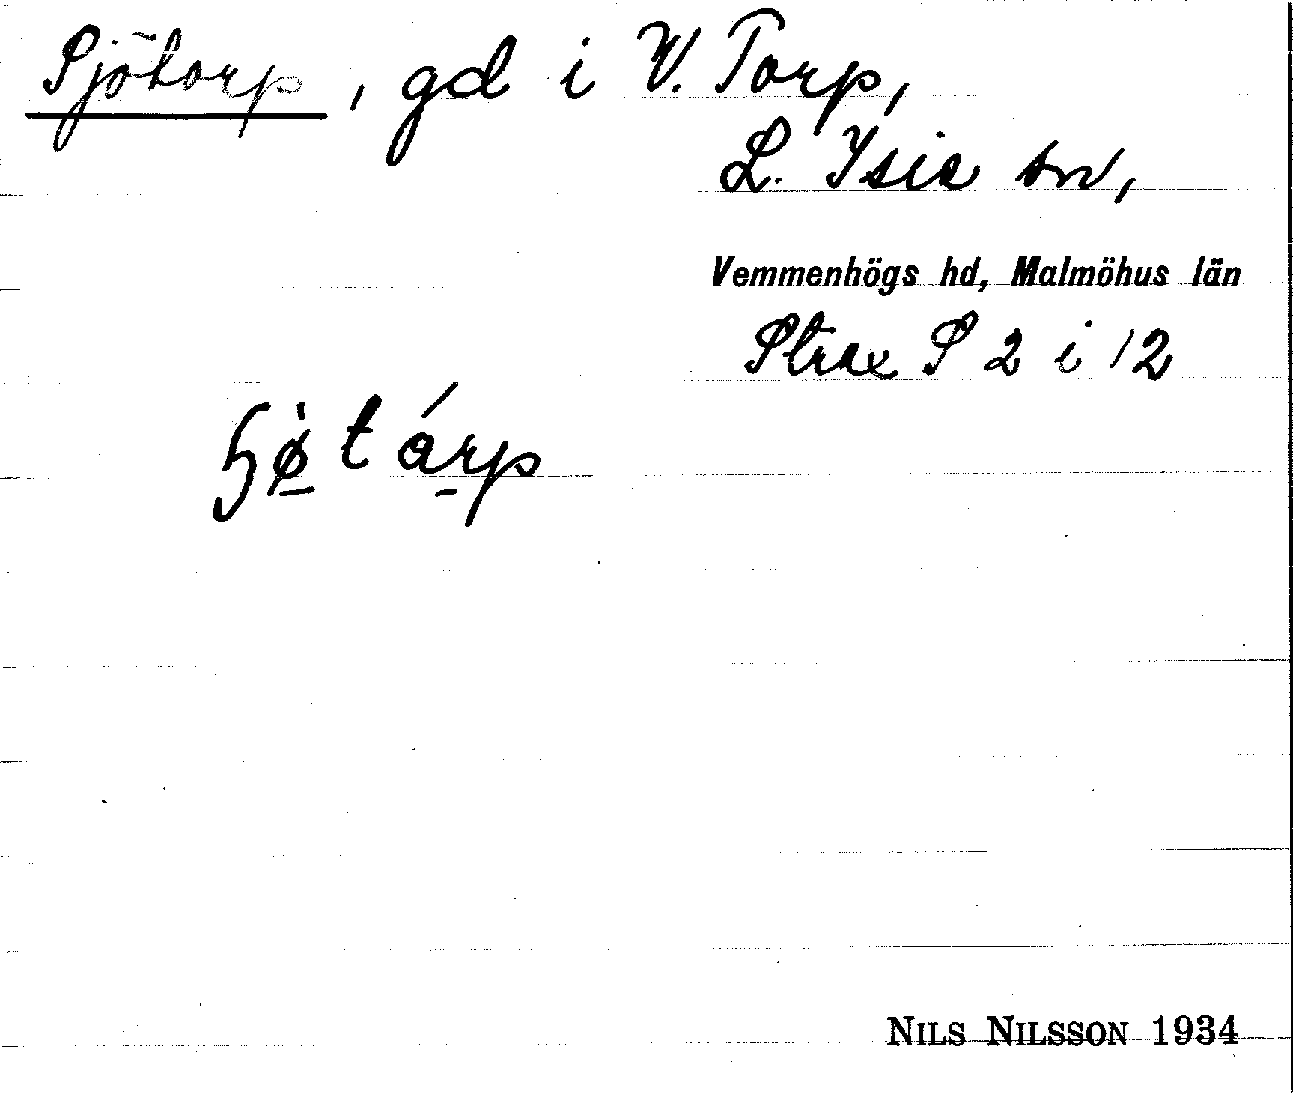 Sjötorp, gd i V. Torp,
L. Isie sn,
Vemmenhögs hd, Malmöhus län
Strax S 2 i 12
NILS NILSSON 1934